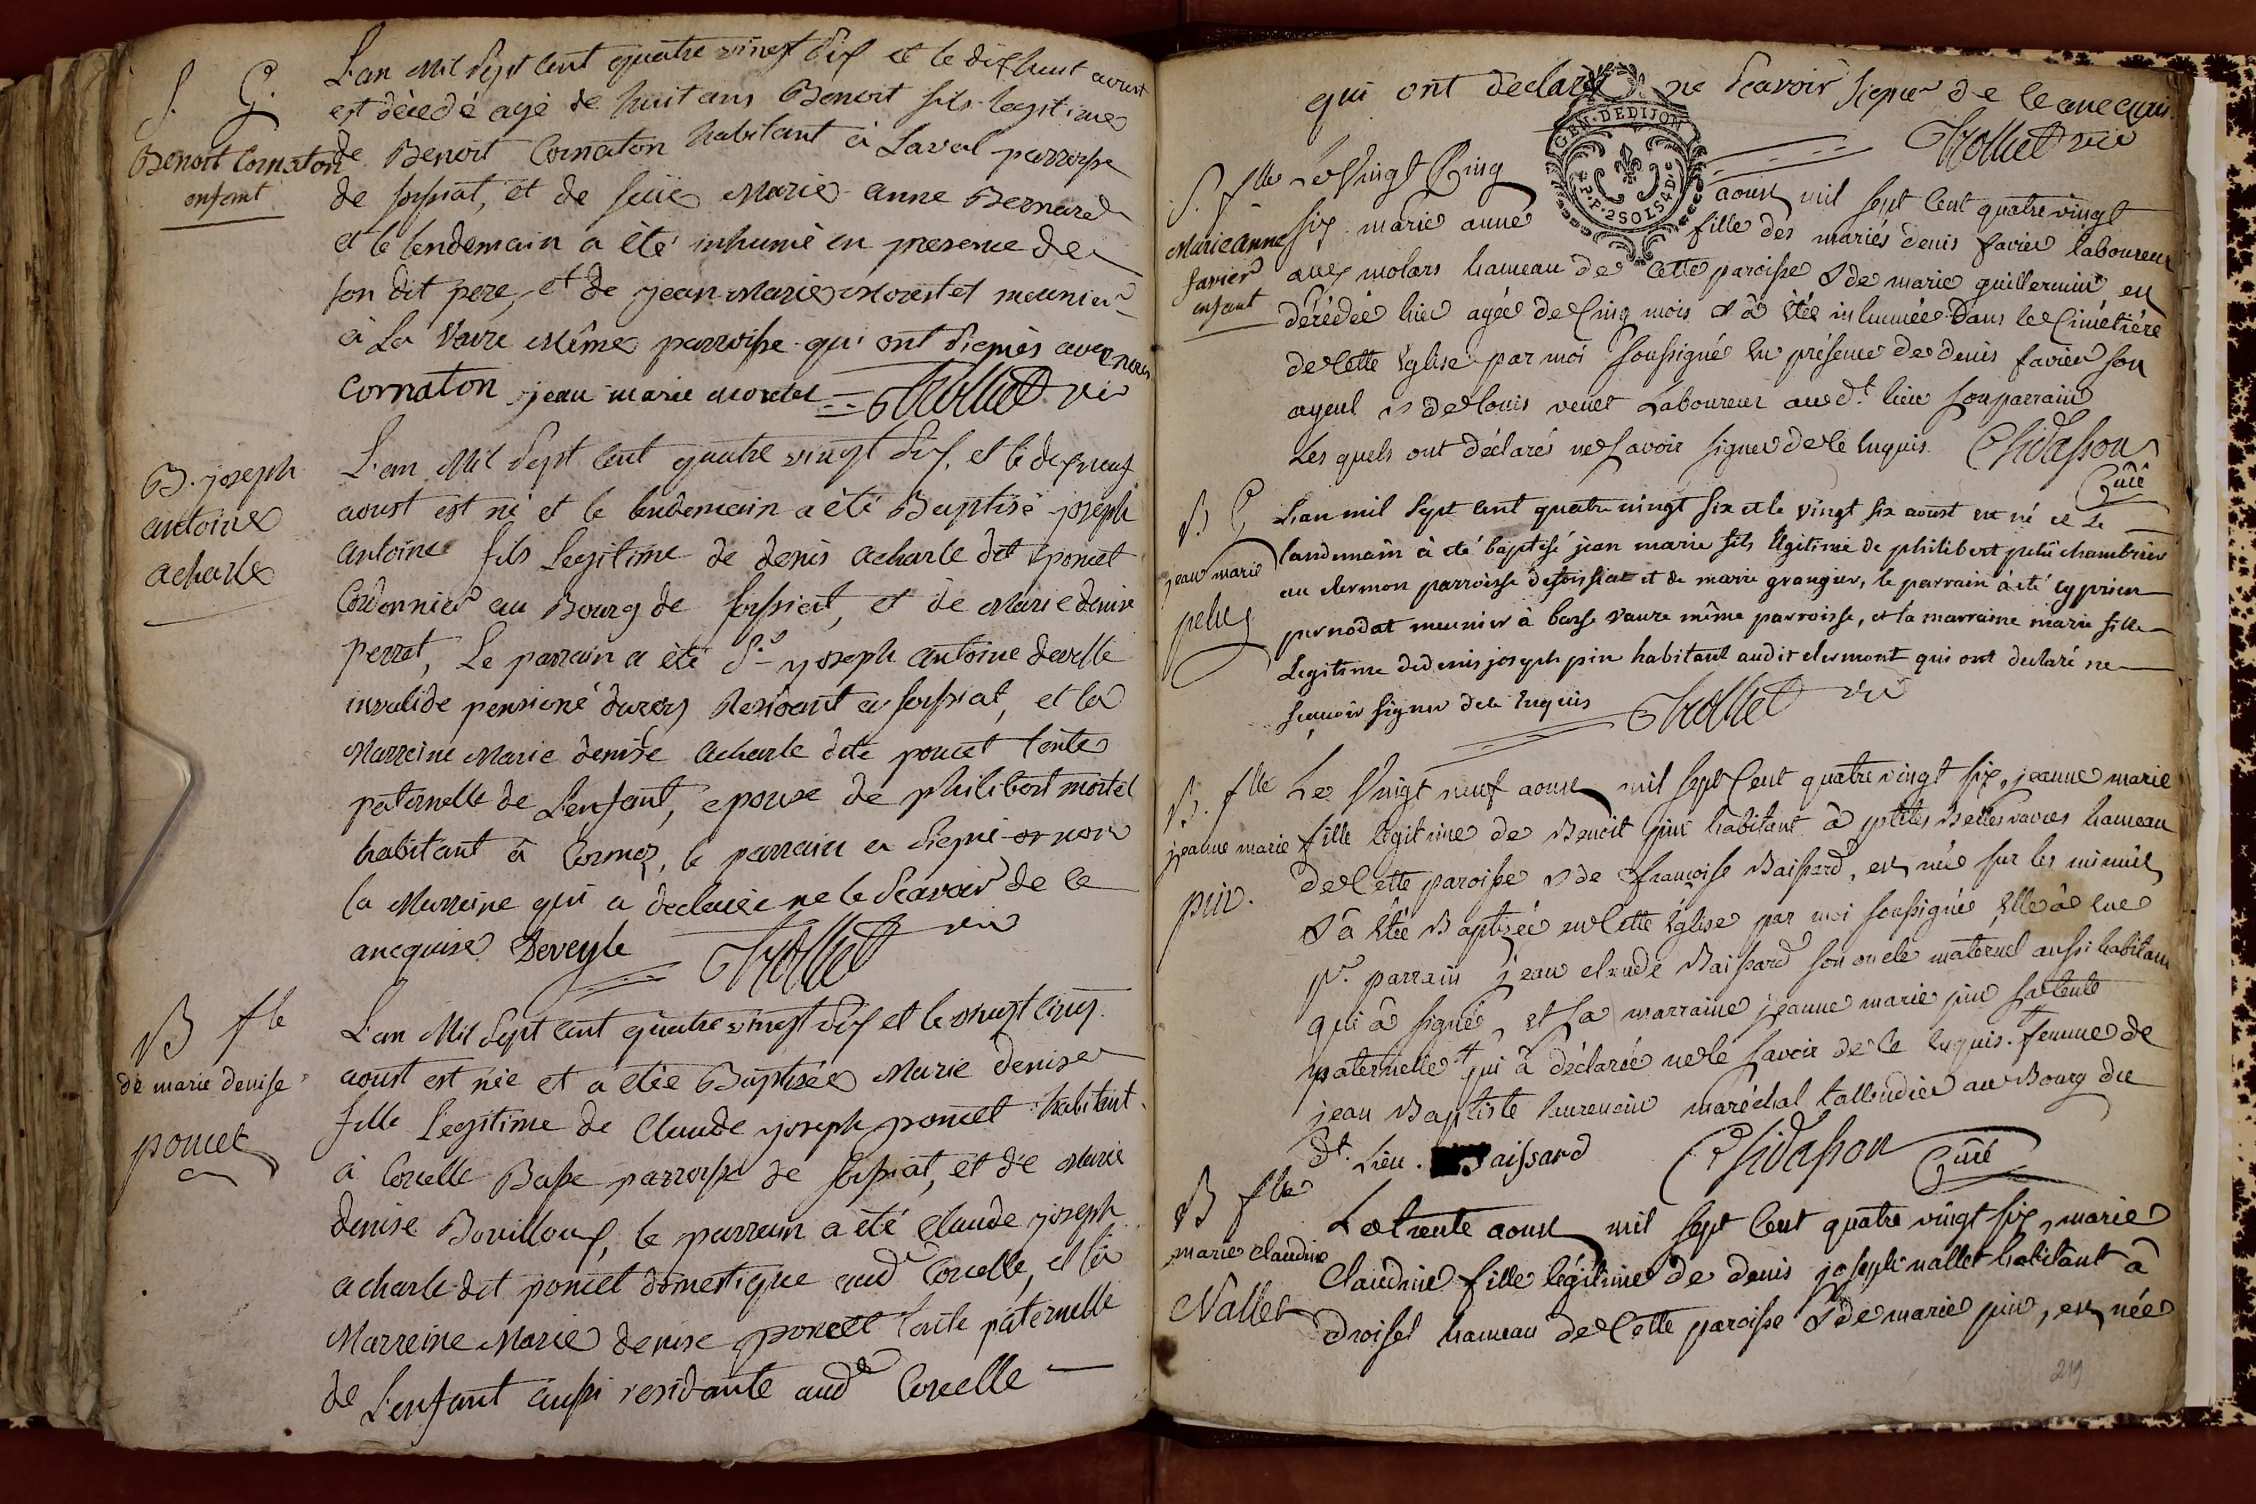 S. G.
Benoit Cornaton
enfant
L'an Mil Sept Cent quatre vingt Six et le dix huit aoust
est décedé agé de huit ans Benoit fils legitime
de Benoit Cornaton habitant à Laval parroisse
de foissiat, et de feüe Marie anne Bernard
et le lendemain a été inhumé en presence de
son dit pere, et de jean Marie Mortel meunier
à La Vavre Même parroisse qui ont signés avec nous
Cornaton jean marie mortel Trolliet vic
B. joseph
antoine
acharle
L'an Mil Sept Cent quatre vingt Six, et le dix neuf
aoust est né et le lendemain a été Baptisé joseph
antoine fils Legitime de denis acharle dit poncet
Cordonnier au Bourg de foissiat, et de Marie denise
perrat, Le parrain a été Sr. joseph antoine develle
invalide pensioné du roy Residant a foissiat, et la
Marreine Marie denise acharle dite poncet tente
paternelle de L'enfant, epouse de philibert mortel
habitant à Cormoz, le parrain a signé et non
la Marreine qui a declarée ne le sçavoir de ce
anequise Deveyle Trolliet vic
B flle
de marie denise
poncet
L'an Mil Sept Cent quatre vingt Six et le vingt cinq
aoust est née et a étée Baptisée Marie denise
fille Legitime de Claude joseph poncet habitant
à Corcelle Basse parroisse de foissiat, et de Marie
denise Bouilloux, le parrain a été Claude joseph
acharle dit poncet domestique aud Corcelle, et la
Marreine Marie denise poncet tante paternelle
de L'enfant aussi residante aud Corcelle
qui ont declaré ne sçavoir signer de ce anequis.
Trolliet vic
GEN. DE DIJON
P.P. 2 SOLS 4 D.
S. flle
Marie anne
favier
enfant
Le Vingt Cinq aoust mil sept Cent quatre vingt
six marie anne fille des mariés denis favier laboureur
aux molars hameau de Cette paroisse & de marie guillermin est
décédée hier agée de Cinq mois & à étée inhumée dans le Cimetiére
de Cette église par moi soussigné en présence de denis favier son
ayeul & de louis venet Laboureur aud.t lieu son parrain
Les quels ont déclarés ne savoir signer de ce enquis. Chidasson
Curé
B G
jean marie
pelus
L'an mil sept cent quatre vingt six et le vingt six aoust est né et le
landemain à été baptisé jean marie fils légitime de philibert pelu chambrier
au clermon parroisse de foissiat et de marie grangier, le parrain à été cyprien
pernodat meunier à basse vavre même parroisse, et la marraine marie fille
Legitime de denis joseph pin habitant audit clermont qui ont declaré ne
sçavoir signer de ce enquis Trolliet vic
B. flle
jeanne marie
pin.
Le Vingt neuf aoust mil sept Cent quatre vingt six, jeanne marie
fille légitime de Benoit pin habitant à ptites Belles vavres hameau
de Cette paroisse & de françoise Baissard, est née sur les minuit
& à étée Baptisée en Cette église par moi soussigné, Elle à eue
pr. parrain jean claude Baissard son oncle maternel aussi habitant
qui à signé, et sa marraine jeanne marie pin sa tente
paternelle qui à déclarée ne le savoir de ce enquis. femme de
jean Baptiste laurencin maréchal tallendier au Bourg du
dt. Lieu. Baissard Chidasson Curé
B flle
marie claudine
Nallet
Le trente aoust mil sept Cent quatre vingt six, marie
Claudine fille légitime de denis joseph nallet habitant à
droisel hameau de Cette paroisse & de marie pin, est née
219